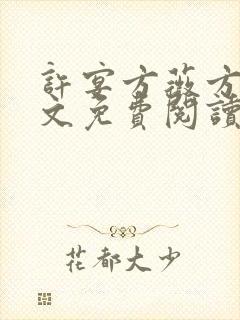 許宴方薇方
文免費閱讀
花都大少